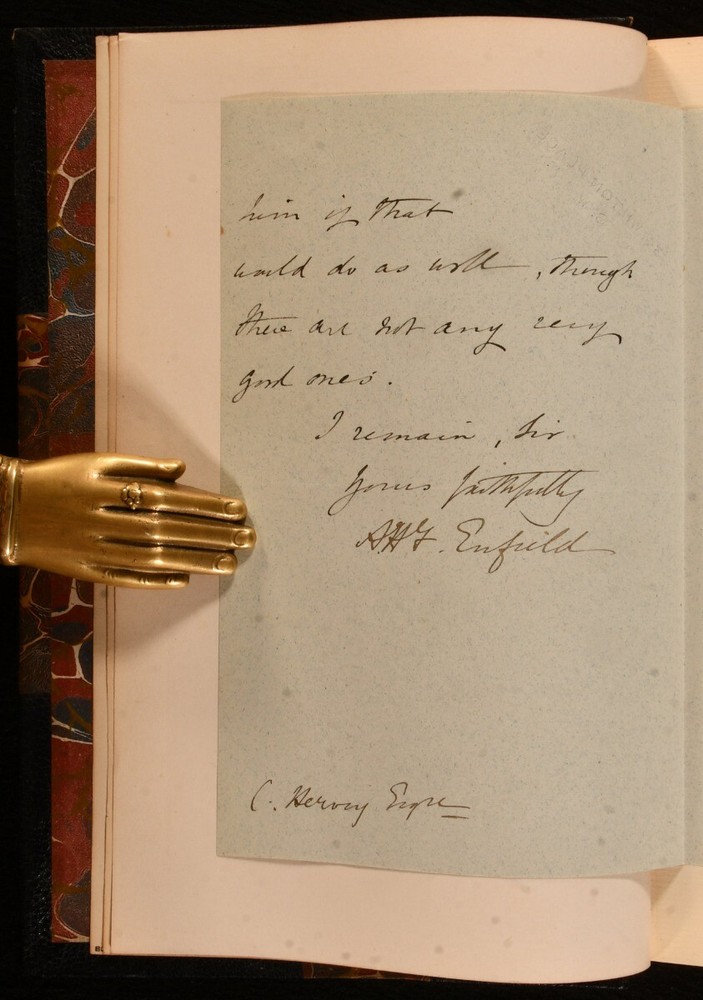 him if that
would do as well, though
there are not any very
good ones.
I remain, Sir
Yours faithfully
Enfield
C. Hervey Esqre